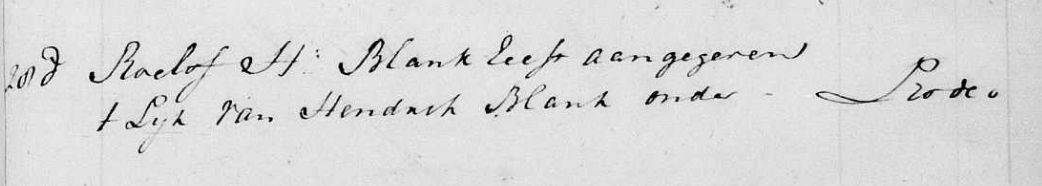 28 d Roelof H: Blank heeft aangegeven
t Lyk van Hendrik Blank onder - Pro deo